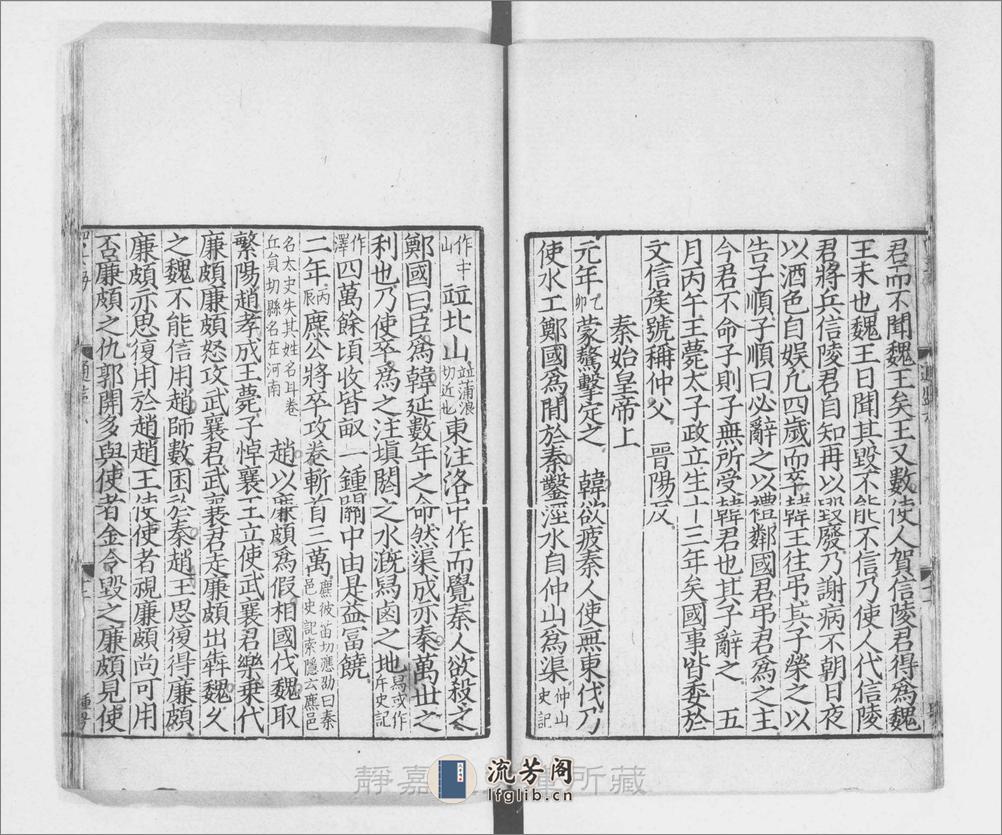 君而不聞魏王矣王又數使人賀信陵君得為魏
王未也魏王日聞其毀不能不信乃使人代信陵
君將兵信陵君自知再以毀發乃謝病不朝日夜
以酒色自娛凡四歲而卒韓王往弔其子榮之以
告子順子順曰必辭之以禮鄰國君弔君為之主
今君不命子則子無所受韓君也其子辭之 五
月丙午王薨太子政立生十三年矣國事皆委於
文信矦號稱仲父 晉陽反
秦始皇帝上
元年乙卯蒙驁擊定之 韓欲疲秦人使無東伐乃
使水工鄭國為間於秦鑿涇水自仲山為渠仲山史記
作中山竝北山竝蒲浪切近也東注洛中作而覺秦人欲殺之
鄭國曰臣為韓延數年之命然渠成亦秦萬世之
利也乃使卒為之注填閼之水溉舄鹵之地舄或作斥史記
作澤四萬餘頃收皆畝一鍾關中由是益富饒
二年丙辰麃公將卒攻卷斬首三萬麃彼苗切應劭曰秦邑史記索隱云麃邑
名太史失其姓名耳卷丘員切縣名在河南 趙以廉頗為假相國伐魏取
繁陽趙孝成王薨子悼襄王立使武襄君樂乗代
廉頗廉頗怒攻武襄君武襄君走廉頗出犇魏久
之魏不能信用趙師數困於秦趙王思復得廉頗
廉頗亦思復用於趙趙王使使者視廉頗尚可用
否廉頗之仇郭開多與使者金令毀之廉頗見使
靜嘉 所藏
流芳阁
lfglib.cn